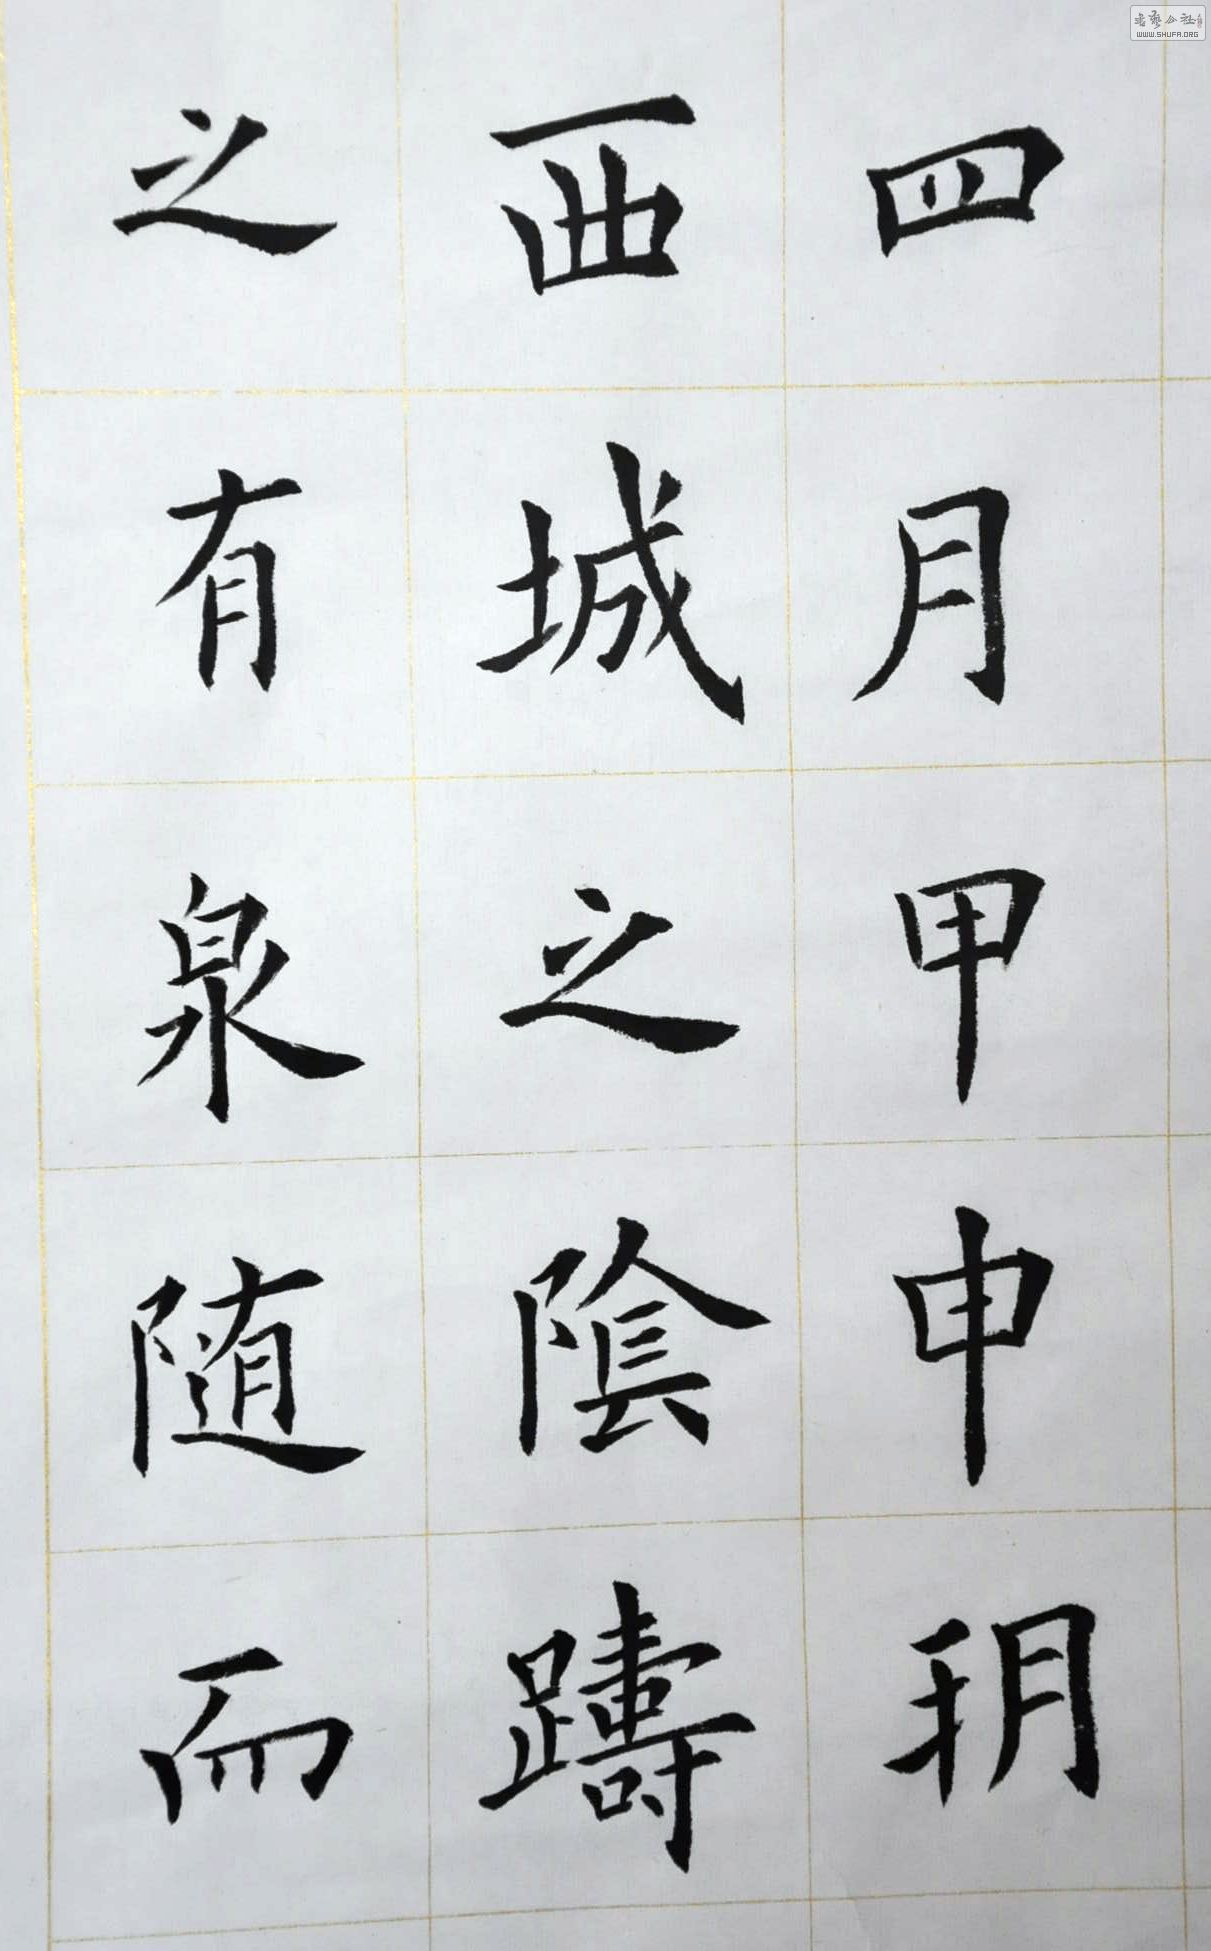 四月甲申朔
西城之陰躊
之有泉随而
書藝公社
WWW.SHUFA.ORG